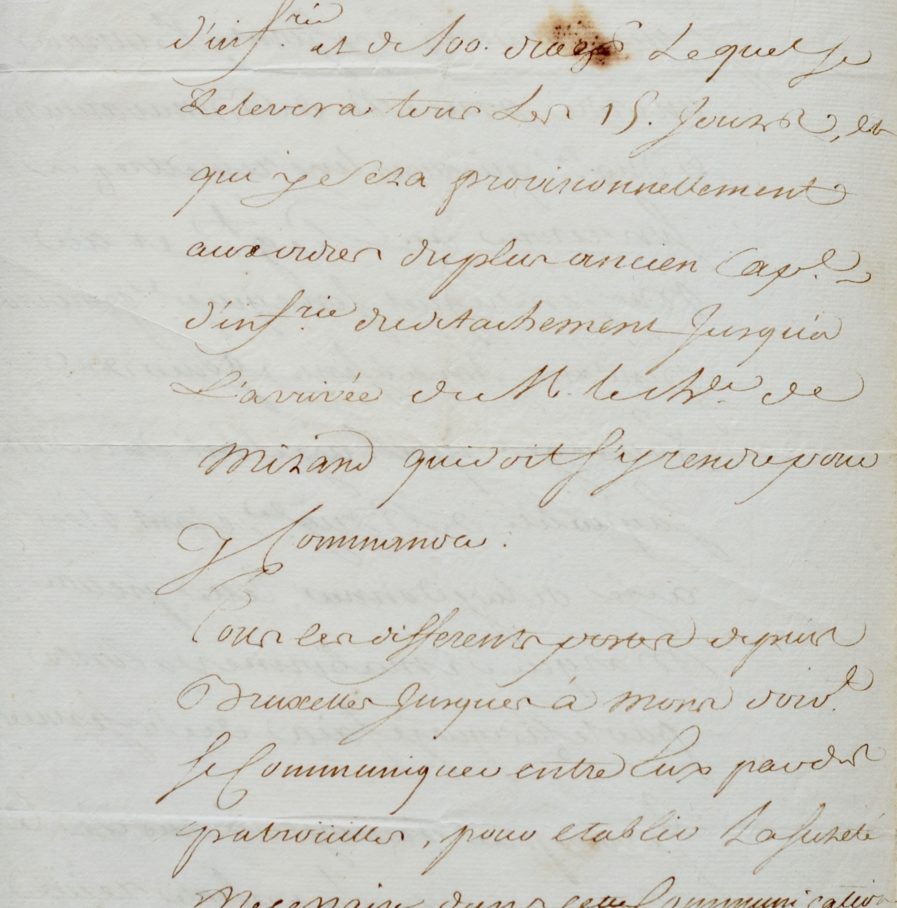 d'inf.rie et de 100. drag.s Lequel se
Relevera tous Les 15. Jours, et
qui y sera provisionnellement
aux ordres du plus ancien Cap.e
d'inf.rie du detachement Jusqu'a
L'arrivée de M. le de
Mirand qui doit s'y rendre pour
y Commander.
Tous les differents postes depuis
Bruxelles Jusques à Mons doiv.t
se Communiquer entre Eux par des
patrouilles, pour etablir La sureté
Necessaire dans cette Communication